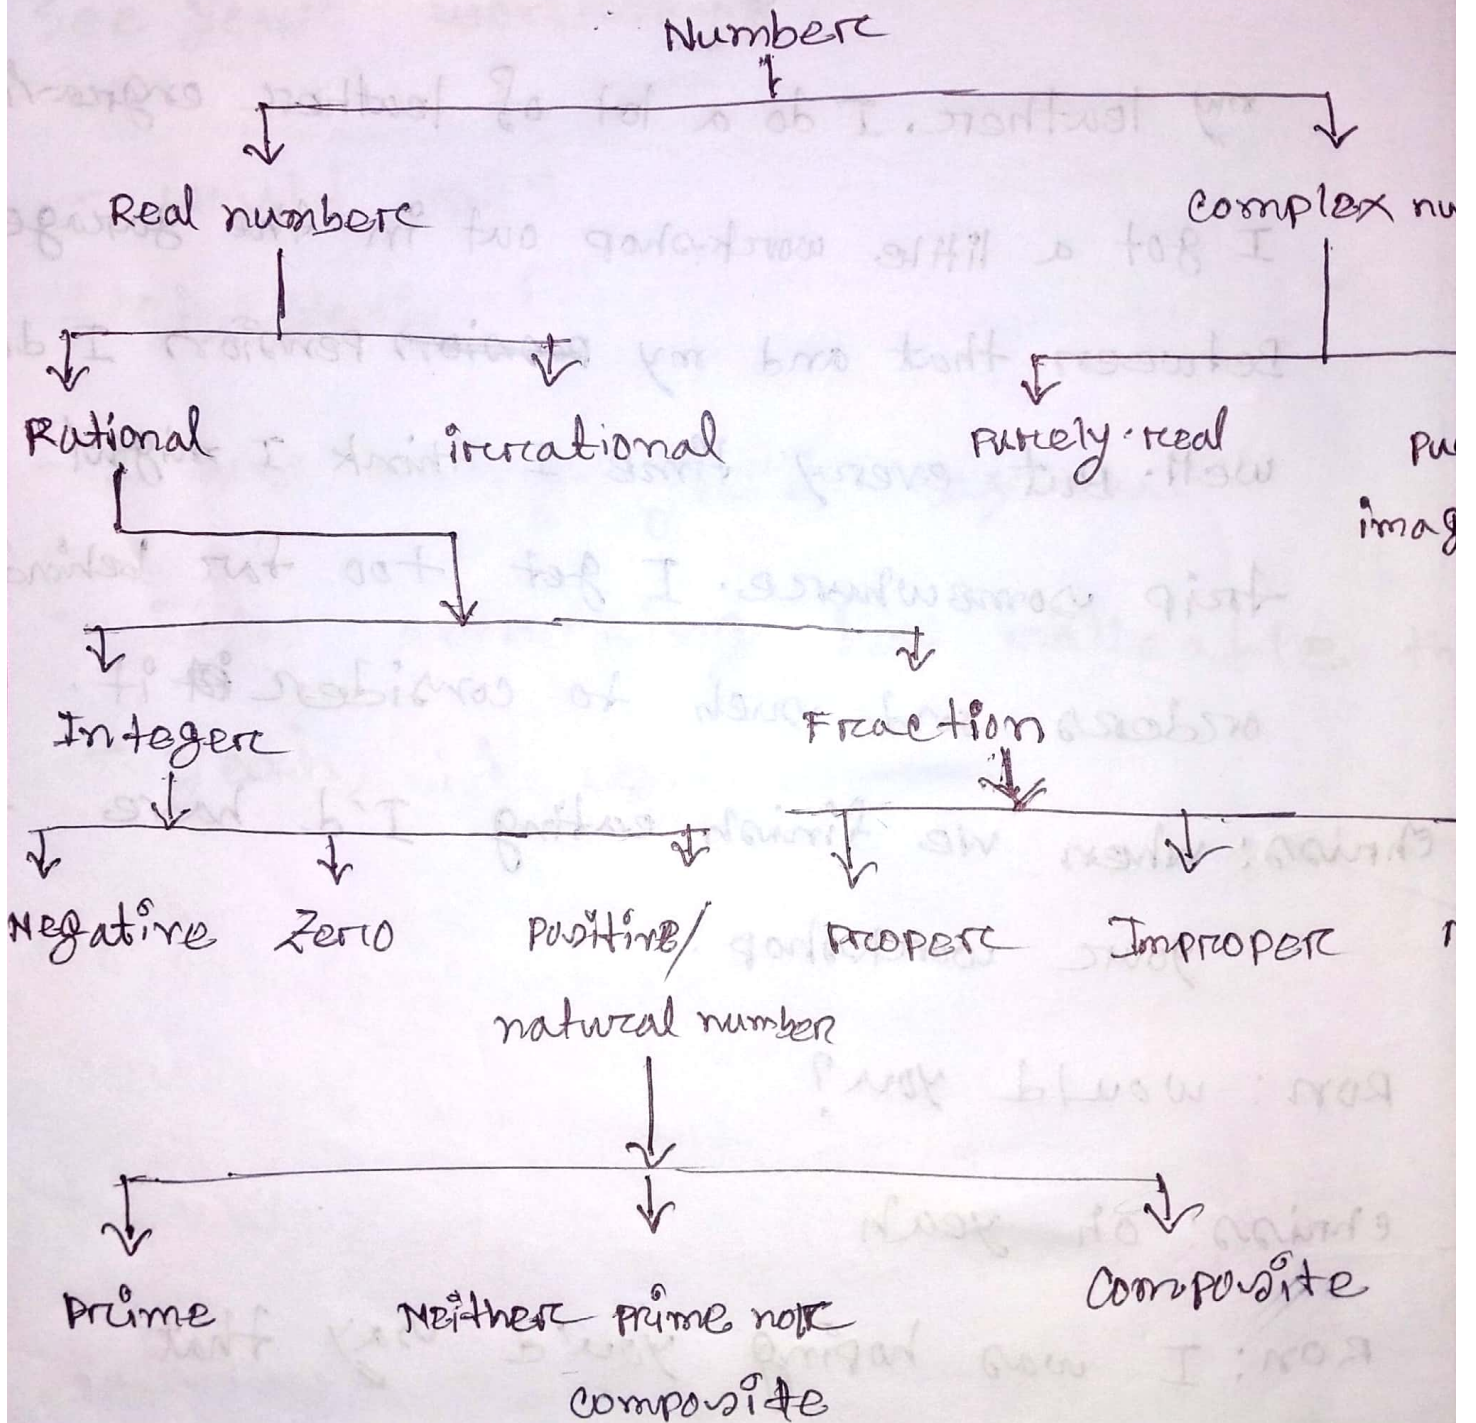 Number
Real number
complex nu
Rational
irrational
Purely real
pu
imag
Integer
Fraction
Negative
Zero
Positive/
Proper
Improper
natural number
Prime
Neither prime nor
composite
Composite